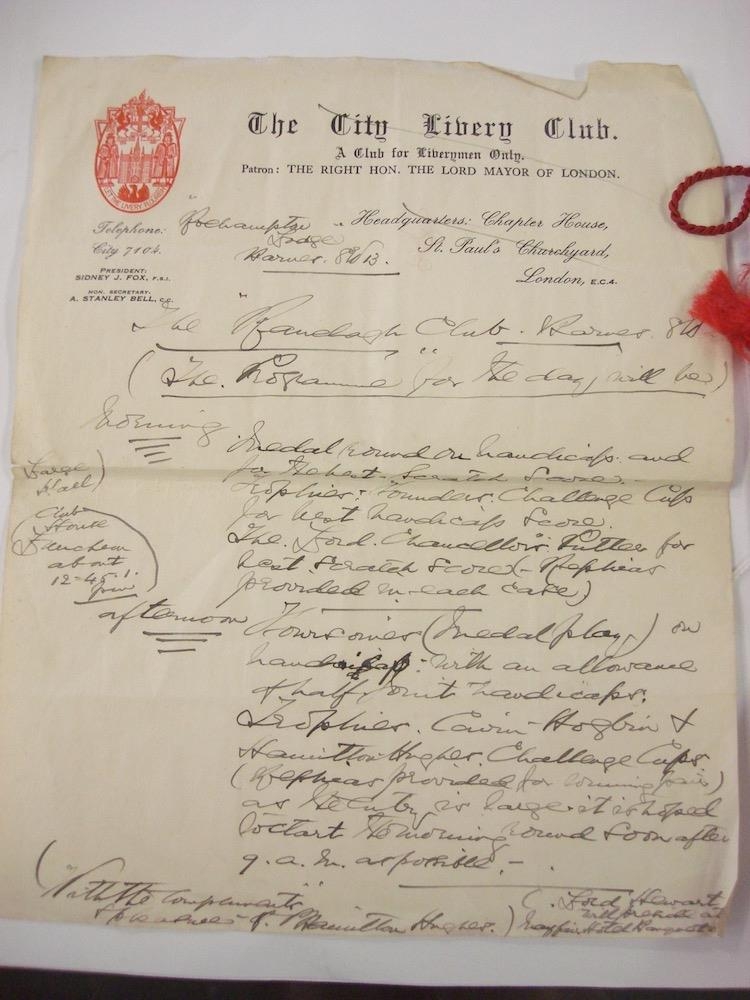 The City Livery Club.
A Club for Liverymen Only.
Patron: THE RIGHT HON. THE LORD MAYOR OF LONDON.
Telephone:
City 7104.
PRESIDENT:
SIDNEY J. FOX, F.S.I.
HON. SECRETARY:
A. STANLEY BELL, C.C.
"Roehampton
Lodge
Barnes. SW13.
Headquarters: Chapter House,
St. Paul's Churchyard,
London, E.C.4.
The "Ranelagh Club". Barnes. SW
(The Programme for the day, will be)
Morning
Medal round on handicap. and
for the best Scratch Score.
Trophies: Founders. Challenge Cup
for best handicap score.
The Lord Chancellors. Putter for
best scratch score (Replicas
provided in each case)
Large
Hall)
Club
House
Luncheon
about
12-45-1.
pm
afternoon
Foursomes (Medal play) on
handicap: with an allowance
of half joint handicaps.
Trophies. Hogbin &
Hamilton Hughes. Challenge Cups
(Replicas provided for winning pair)
as the entry is large it is hoped
to start the morning round soon after
9. a.m. as possible. -
(With the Compliments
P. Hamilton Hughes.)
(. Lord Stewart
will preside at
Mayfair Hotel Banquet